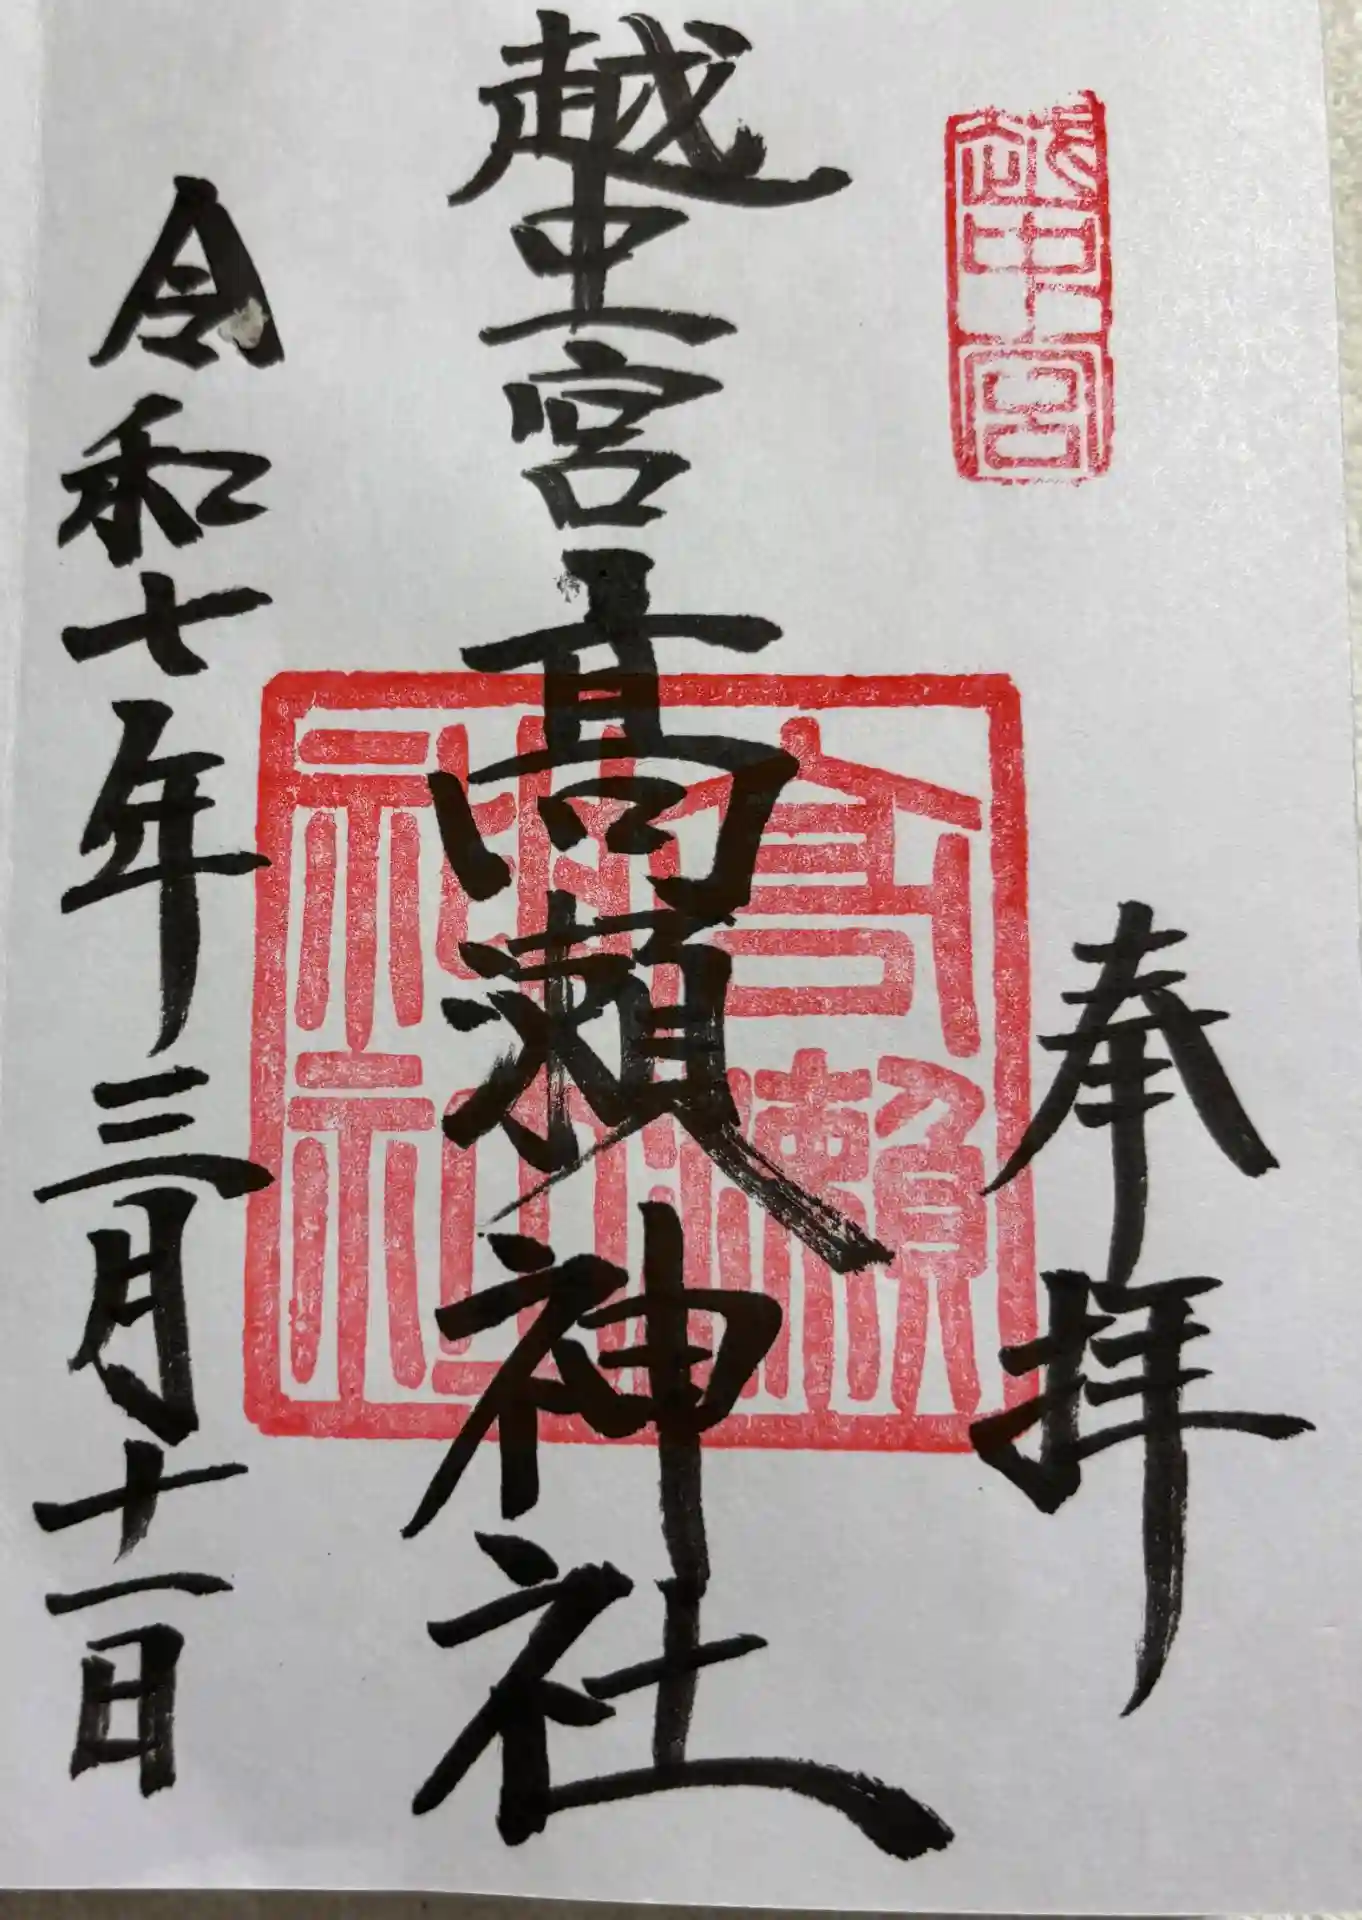 越中一宮
奉拝
越中一宮髙瀬神社
高瀬神社
令和七年三月十一日